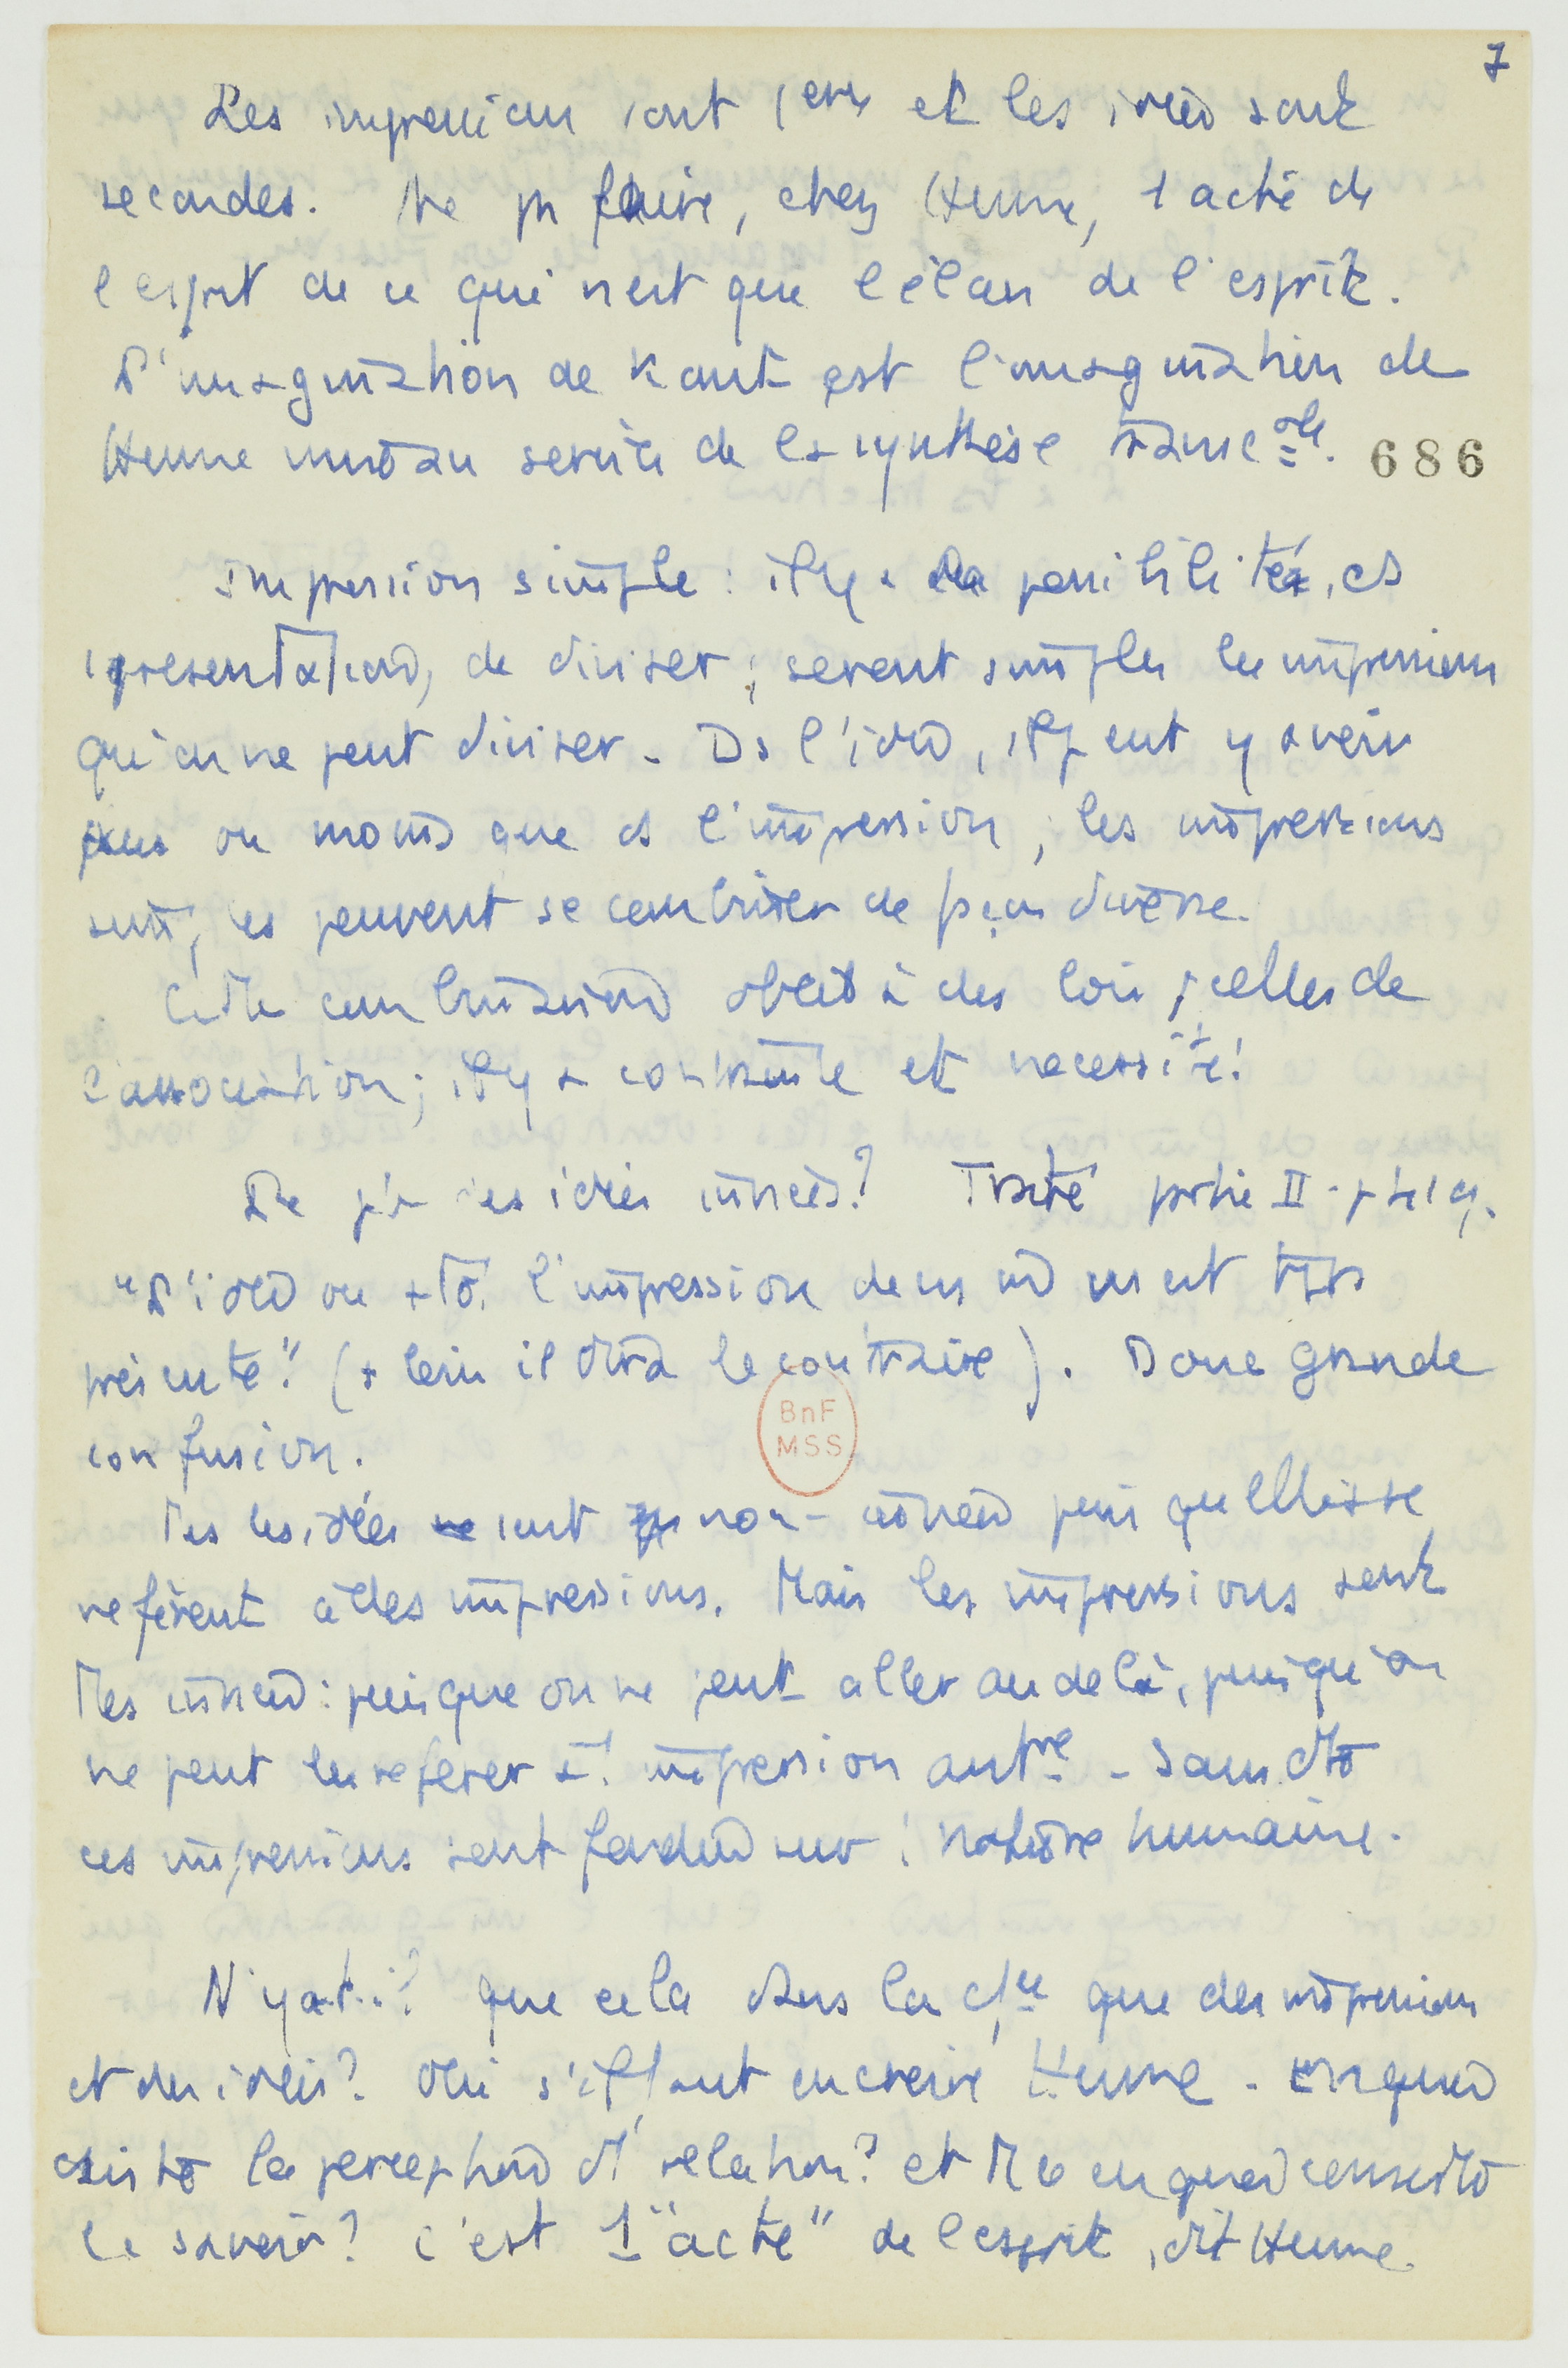 7
Les impressions sont 1eres et les idées sont
secondes. Ne pas faire, chez Hume, 1 acte de
l'esprit de ce qui n'est que l'élan de l'esprit.
L'imagination de Kant est l'imagination de
Hume mise au service de la synthèse transcale.
686
Impression simple : il y a possibilité, ds
représentation, de diviser ; seront simples les impressions
qu'on ne peut diviser. Ds l'idée, il peut y avoir
plus ou moins que ds l'impression ; les impressions
simples peuvent se combiner de façon diverse.
Cette combinaison obéit à des lois, celles de
l'association ; il y a contrainte et nécessité.
idées innées? Traité partie II
"L'idée ou +tôt l'impression demeurent tjrs
présente" (+ loin il dira le contraire). Donc grande
confusion.
Ttes les idées sont non-innées puisqu'elles se
réfèrent à des impressions. Mais les impressions sont
ttes innées : puisque on ne peut aller au delà, puisqu'on
ne peut les referer à 1 impression autre - Sans doute
ces impressions sont fondées sur nature humaine.
N'y a-t-il que cela dans la que des impressions
et des idées? Oui s'il faut en croire Hume. En quoi
consiste la perception d'1 relation? et en quoi consiste
le savoir? C'est 1 "acte" de l'esprit, dit Hume.
BnF
MSS